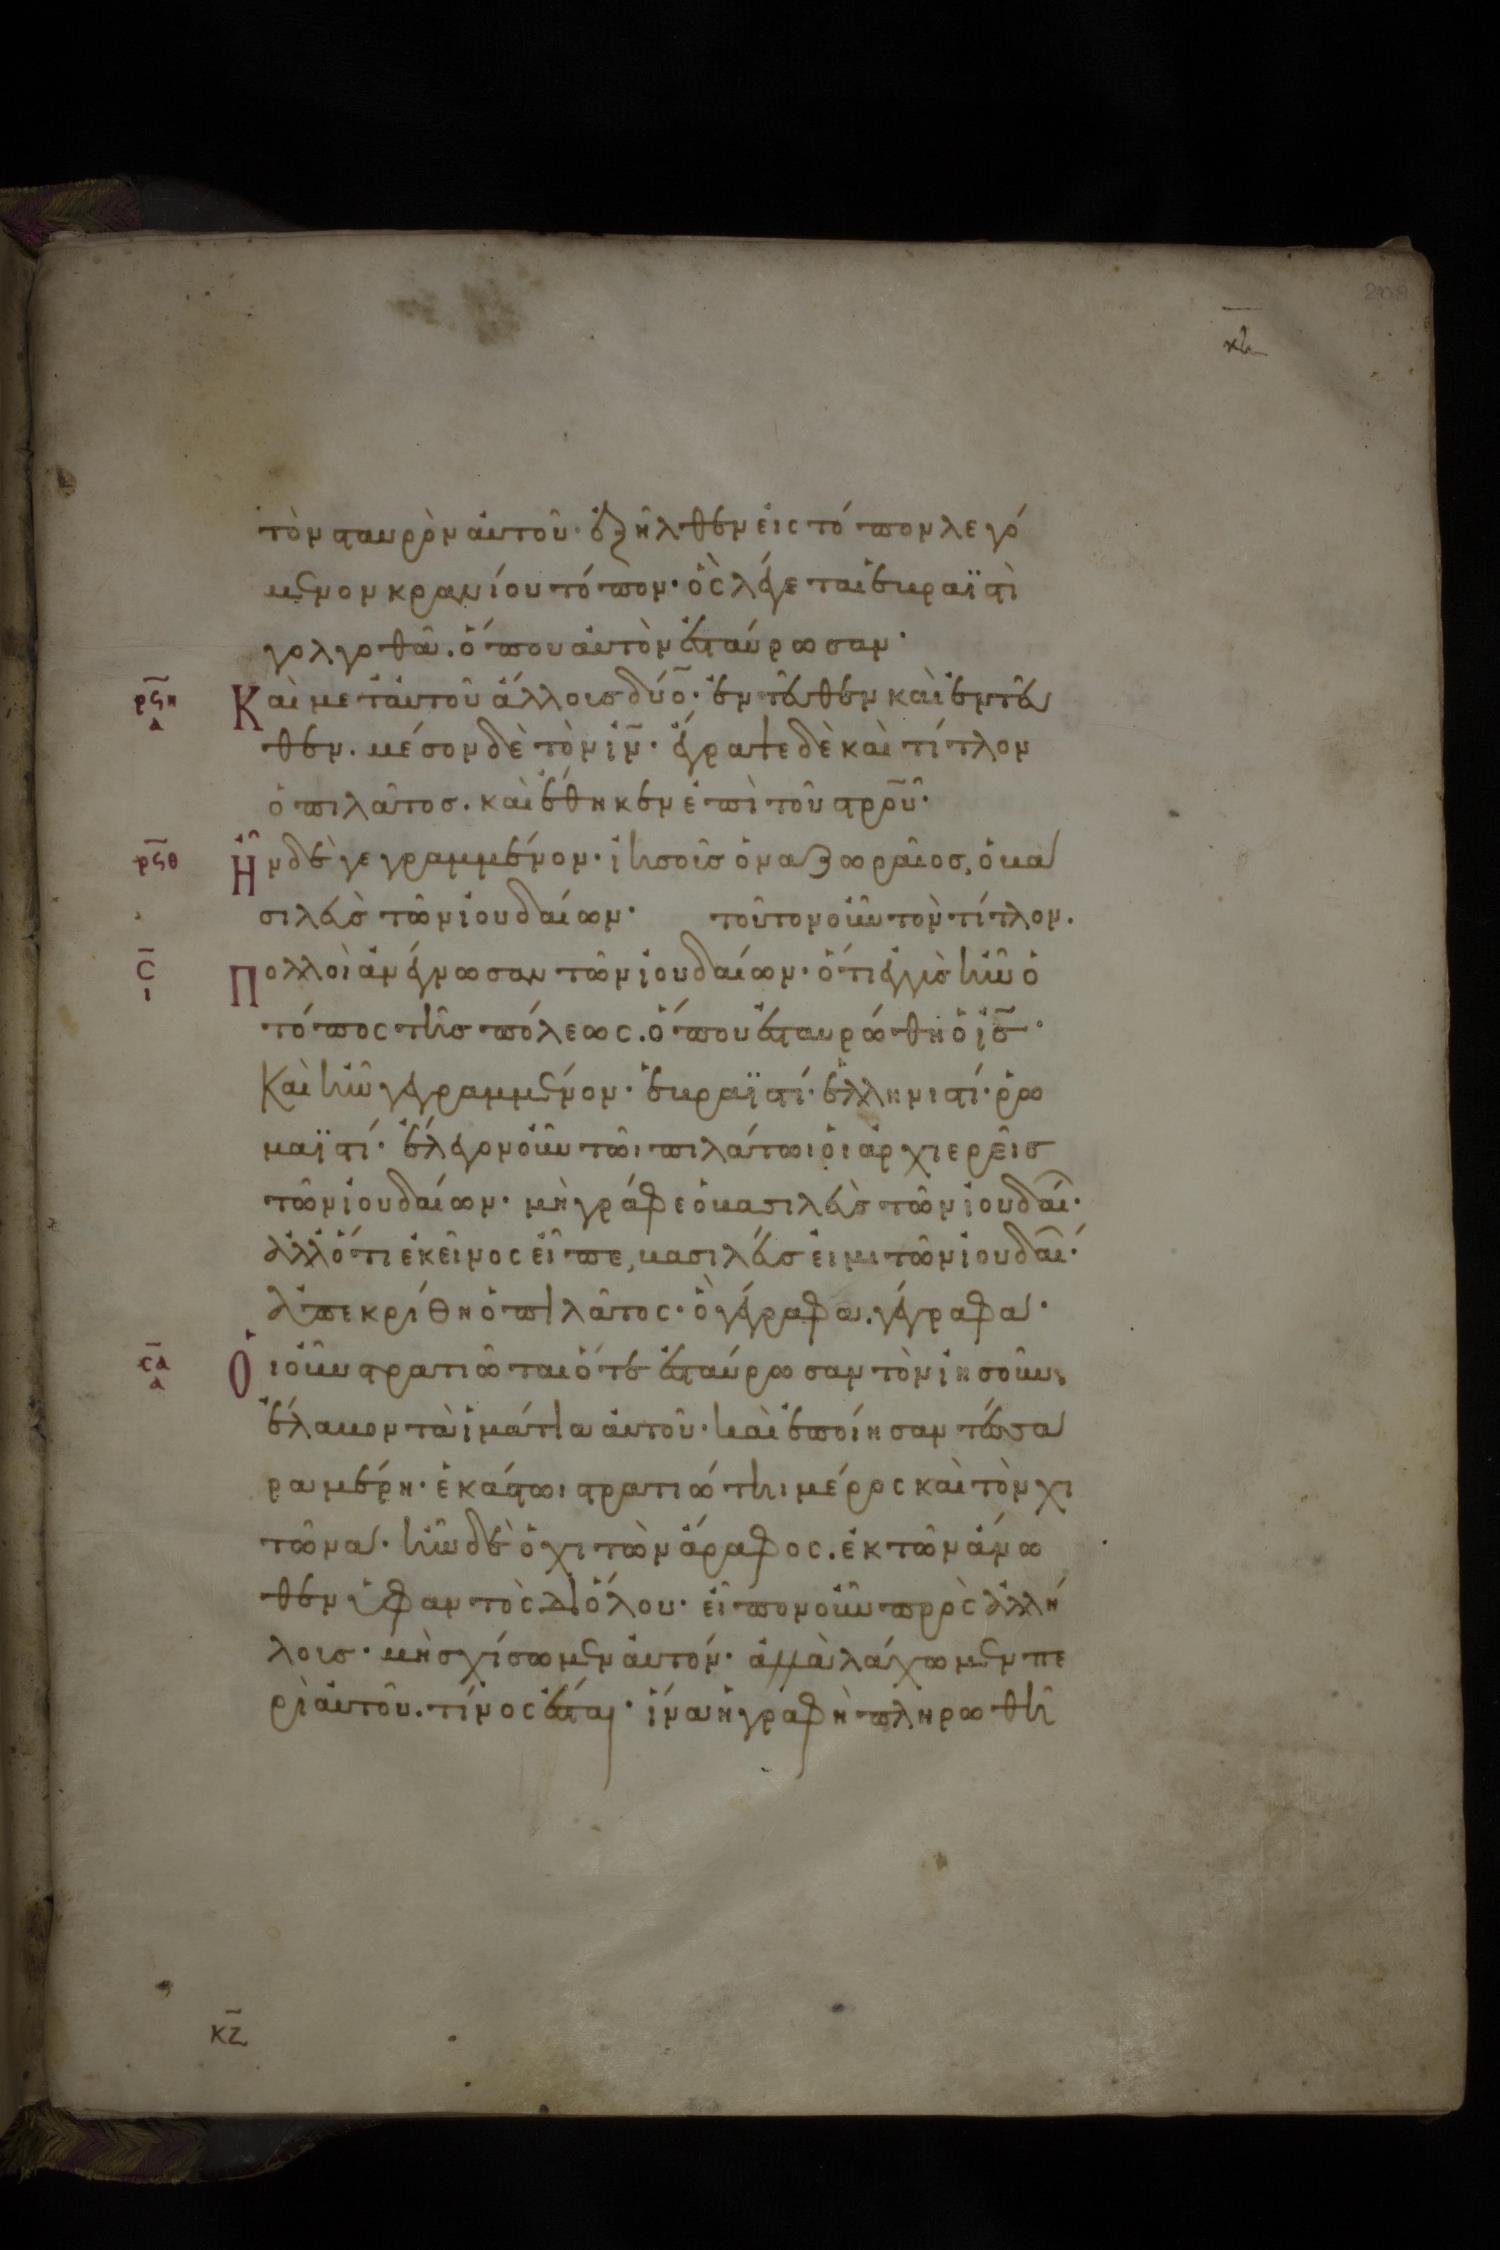 208
κζ
τὸν σταυρὸν αὐτοῦ· ἐξῆλθεν εἰς τόπον λεγό
μενον κρανίου τόπον· ὃς λέγεται ἑβραϊστὶ
γολγοθᾶ. ὅπου αὐτὸν ἐσταύρωσαν·
ρϟη
α
Καὶ μετ' αὐτοῦ ἄλλους δύο· ἐντεῦθεν καὶ ἐντεῦ
θεν. μέσον δὲ τὸν ιν̅· ἔγραψε δὲ καὶ τίτλον
ὁ πιλᾶτος. καὶ ἔθηκεν ἐπὶ τοῦ στρου̅·
ρϟθ
Ἦν δὲ γεγραμμένον· ἰησοῦς ὁ ναζωραῖος, ὁ βα
σιλεὺς τῶν ἰουδαίων· τοῦτον οὖν τὸν τίτλον.
σ
ι
Πολλοὶ ἀνέγνωσαν τῶν ἰουδαίων· ὅτι ἐγγὺς ἦν ὁ
τόπος τῆς πόλεως. ὅπου ἐσταυρώθη ὁ ις̅·
Καὶ ἦν γεγραμμένον· ἑβραϊστί· ἑλληνιστί· ῥω
μαϊστί· ἔλεγον οὖν τῶι πιλάτωι οἱ ἀρχιερεῖς
τῶν ἰουδαίων· μὴ γράφε ὁ βασιλεὺς τῶν ἰουδαί·
ἀλλ' ὅτι ἐκεῖνος εἶπε, βασιλεύς εἰμι τῶν ἰουδαί·
ἀπεκρίθη ὁ πιλᾶτος· ὃ γέγραφα. γέγραφα·
σα
α
Οἱ οὖν στρατιῶται ὅτε ἐσταύρωσαν τὸν ἰησοῦν,
ἔλαβον τὰ ἱμάτια αὐτοῦ· καὶ ἐποίησαν τέσσα
ρα μέρη· ἑκάστωι στρατιώτηι μέρος καὶ τὸν χι
τῶνα· ἦν δὲ ὁ χιτὼν ἄραφος. ἐκ τῶν ἄνω
θεν ὑφαντὸς δι' ὅλου· εἶπον οὖν πρὸς ἀλλή
λους· μὴ σχίσωμεν αὐτόν· ἀλλὰ λάχωμεν πε
ρὶ αὐτοῦ. τίνος ἔσται· ἵνα ἡ γραφὴ πληρωθῆ
κζ